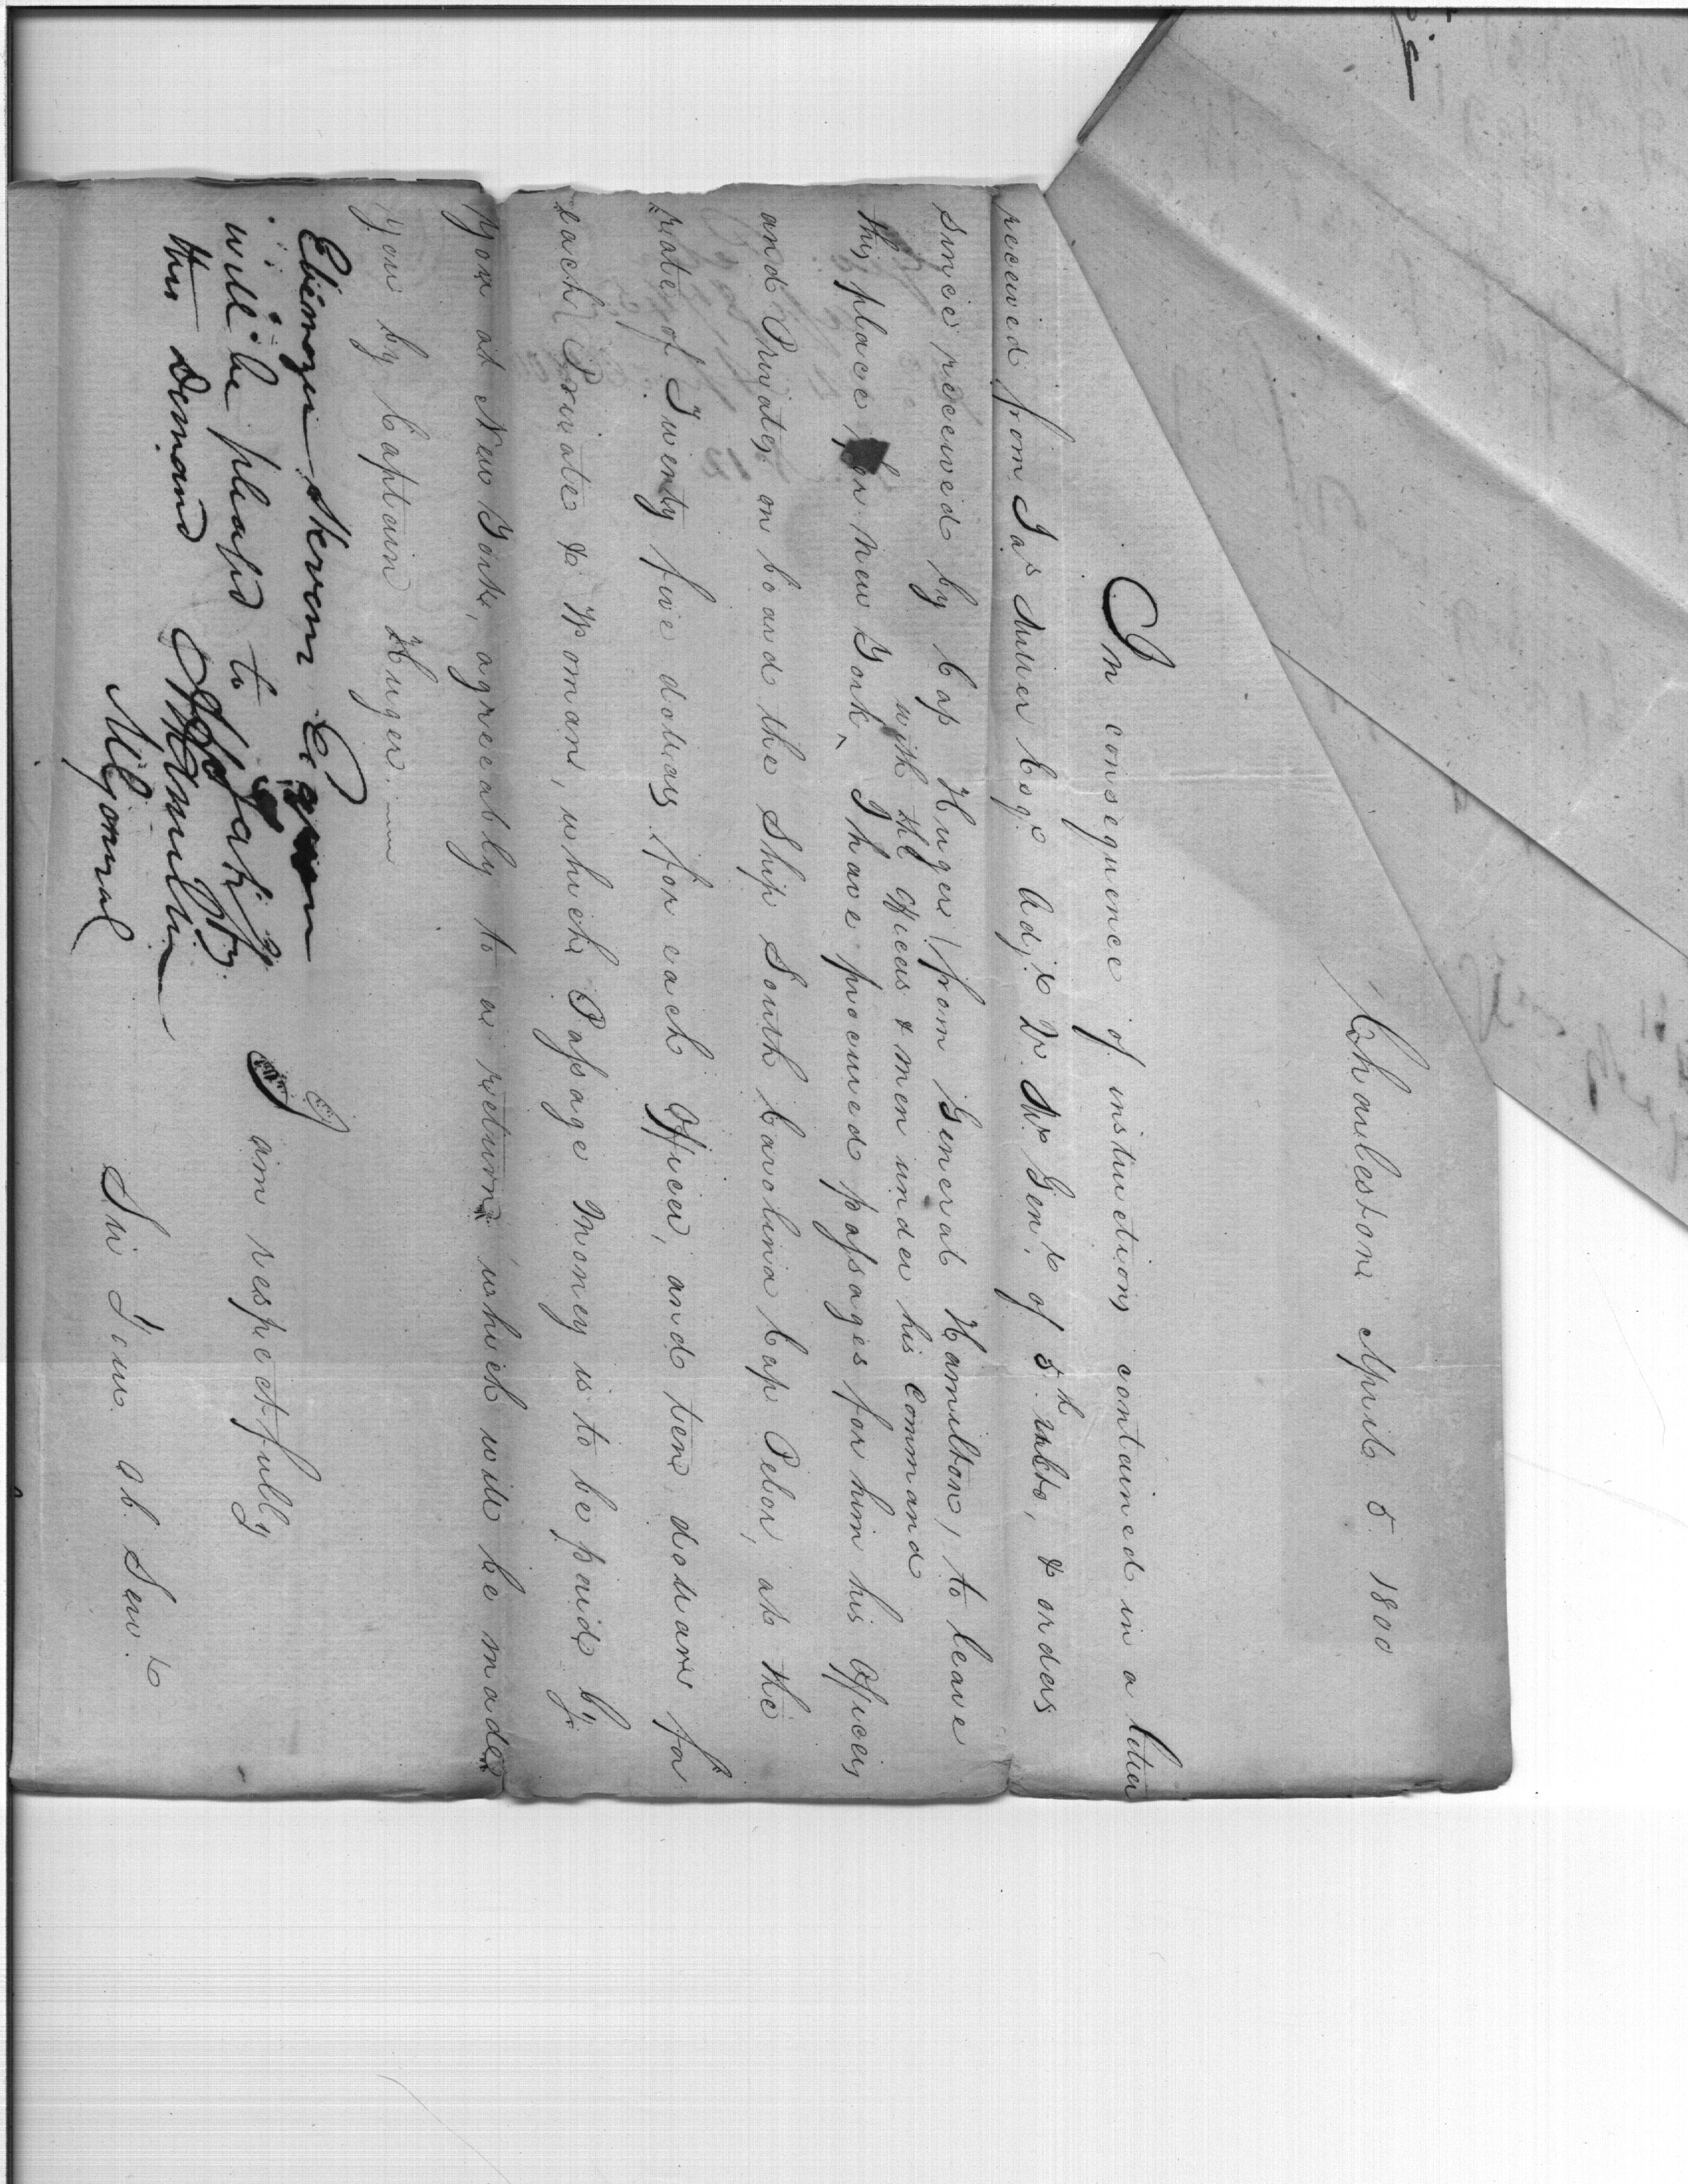 Charlestone April 5 1800
In consequence of instructions contained in a letter
received from Jas Miller Esqr Adjt Qr Mr Genl of 5th ulto, & orders
since received by Cap Huger (from General Hamilton) to leave
with the Officers & men under his Command
this place for New York, I have procured passages for him his Officers
and Privates on board the Ship South Carolina Cap Pelor, at the
rate of Twenty five dollars for each Officer, and ten dollars for
each Private & Woman, which Passage Money is to be paid by
you at New York, agreeably to a return which will be made
you by Captain Huger.
I am respectfully
Sir Your Ob. Servt
Ebenezer Stevens Esquire
will be pleased to satisfy
this demand A Hamilton
M General